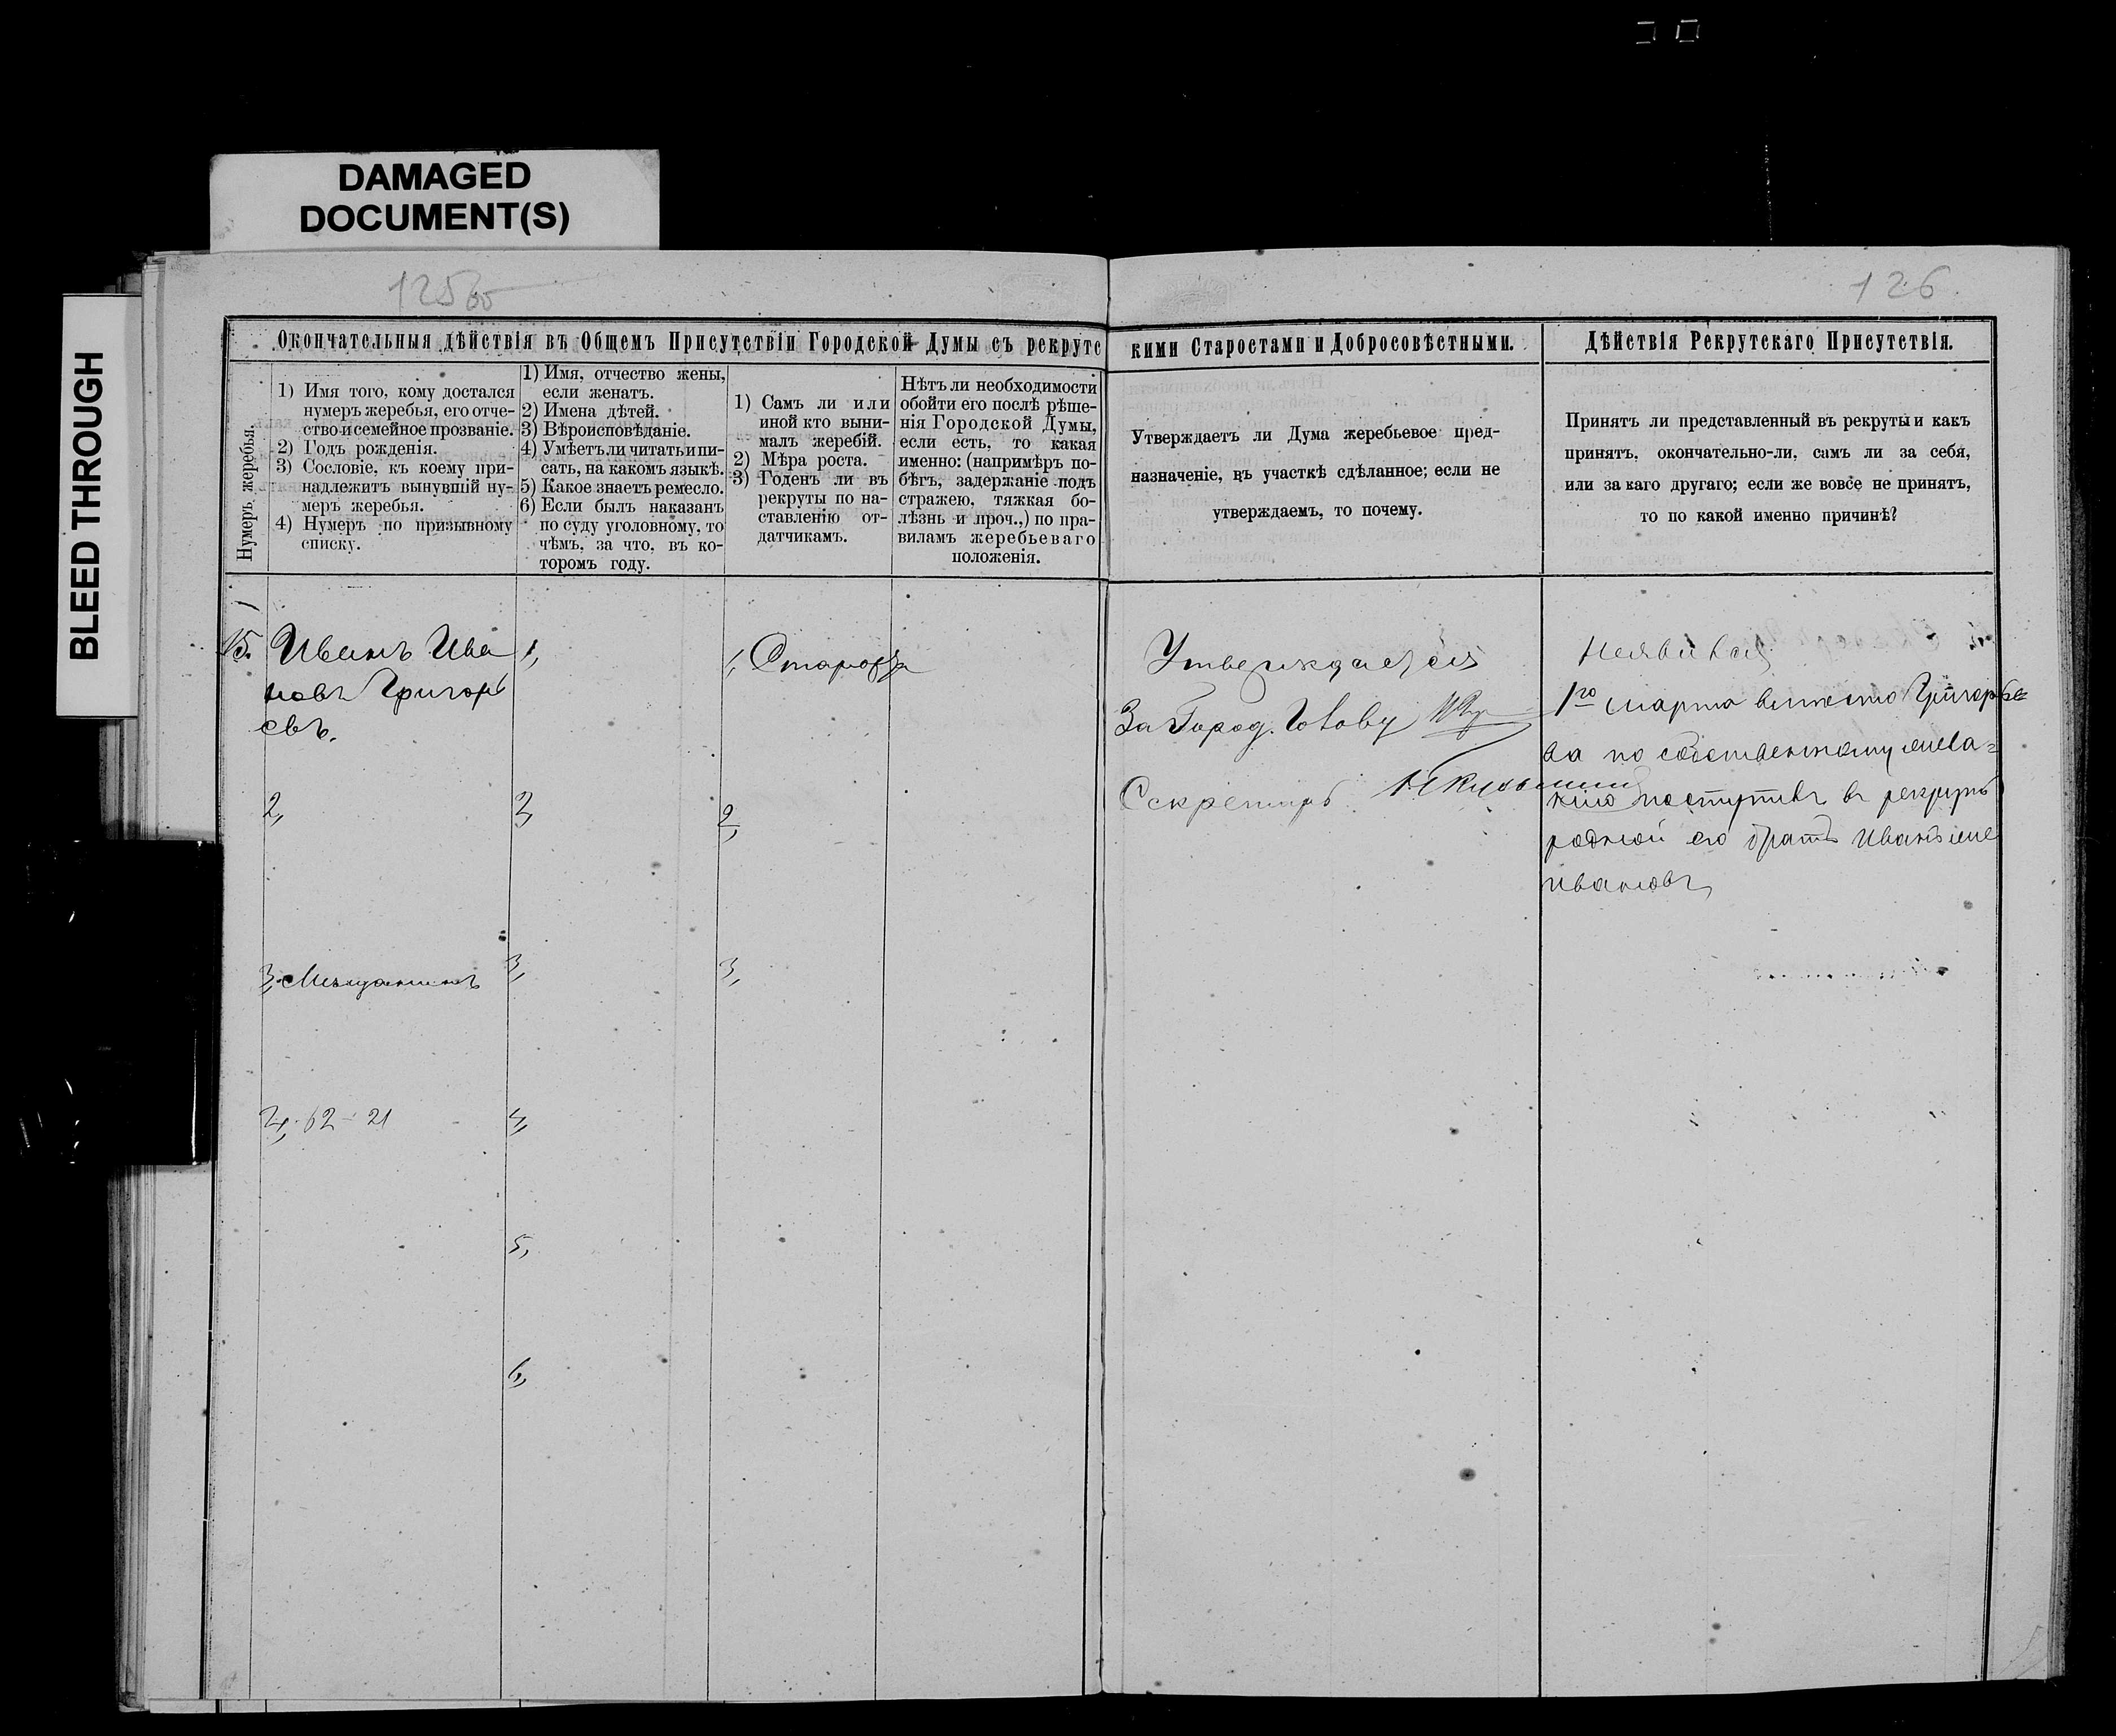 DAMAGED
DOCUMENT(S)
BLEED THROUGH
125об
126
Окончательныя дѣйствія въ Общемъ Присутствіи Городской Думы съ рекрутс
кими Старостами и Добросовѣстными.
Дѣйствія Рекрутскаго Присутствія.
Нумеръ жеребья.
1) Имя того, кому достался
нумеръ жеребья, его отче-
ство и семейное прозваніе.
2) Годъ рожденія.
3) Сословіе, къ коему при-
надлежитъ вынувшій ну-
меръ жеребья.
4) Нумеръ по призывному
списку.
1) Имя, отчество жены,
если женатъ.
2) Имена дѣтей.
3) Вѣроисповѣданіе.
4) Умѣетъ ли читать и пи-
сать, на какомъ языкѣ.
5) Какое знаетъ ремесло.
6) Если былъ наказанъ
по суду уголовному, то
чѣмъ, за что, въ ко-
торомъ году.
1) Самъ ли или
иной кто выни-
малъ жеребій.
2) Мѣра роста.
3) Годенъ ли въ
рекруты по на-
ставленію от-
датчикамъ.
Нѣтъ ли необходимости
обойти его послѣ рѣше-
нія Городской Думы,
если есть, то какая
именно: (напримѣръ по-
бѣгъ, задержаніе подъ
стражею, тяжкая бо-
лѣзнь и проч.,) по пра-
виламъ жеребьеваго
положенія.
Утверждаетъ ли Дума жеребьевое пред-
назначеніе, въ участкѣ сдѣланное; если не
утверждаемъ, то почему.
Принятъ ли представленный въ рекруты и какъ
принятъ, окончательно-ли, самъ ли за себя,
или за каго другаго; если же вовсе не принятъ,
то по какой именно причинѣ?
15.
Иванъ Ива
новъ Григорь
евъ.
2,
3, Мѣщанинъ
4, 62 - 21
1,
2,
3,
4,
5,
6,
1, Староста
2,
3,
Утверждается
За Город. Голову
Секретарь
Неявился
1го марта вмѣсто Григорье=
ва по собственному жела=
нію поступилъ въ рекруты
родной его братъ Иванъ же
Ивановъ